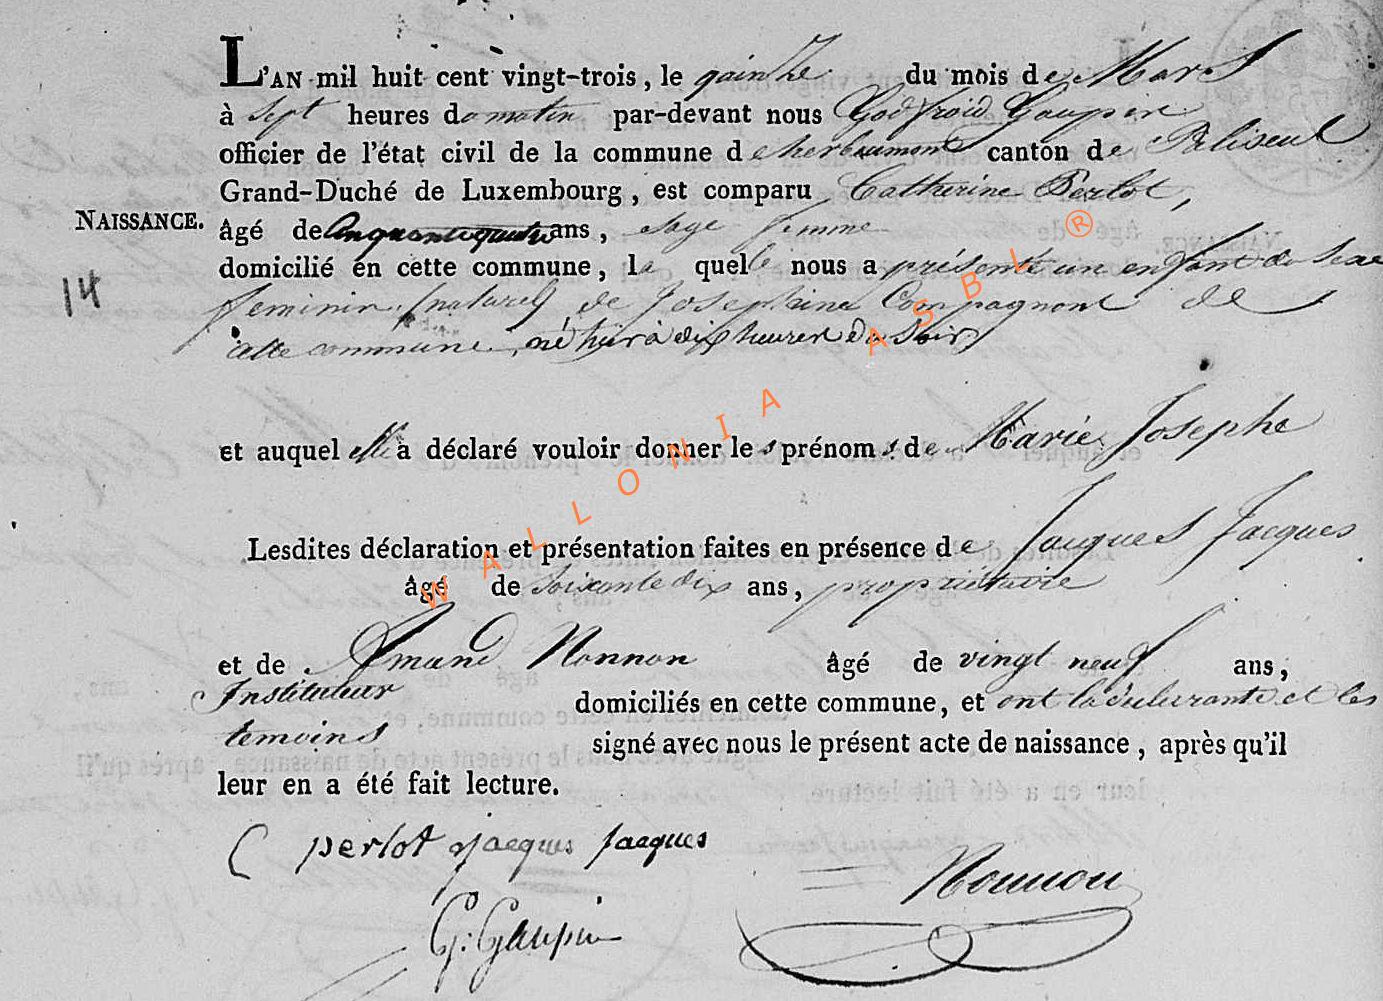 L'AN mil huit cent vingt-trois, le quinze du mois de Mars
à sept heures du matin par-devant nous Godfroid Gaupin
officier de l'état civil de la commune d'herbeumont canton de Paliseul
Grand-Duché de Luxembourg, est comparu Catherine Perlot,
NAISSANCE. âgé de Cinquante quatre ans, sage femme
domicilié en cette commune, la quelle nous a présenté un enfant du sexe
14
feminin (naturel) de Josephine Compagnont de
cette commune, né hier à dix heures du soir
et auquel elle a déclaré vouloir donner les prénoms de Marie Josephe
Lesdites déclaration et présentation faites en présence de Jacques Jacques
âgé de soixante dix ans, propriétaire
et de Amand Nonnon âgé de vingt neuf ans,
Instituteur domiciliés en cette commune, et ont la déclarante et les
temoins signé avec nous le présent acte de naissance, après qu'il
leur en a été fait lecture.
C perlot jacques jacques
Nonnon
G: Gaupin
WALLONIA ASBL ®